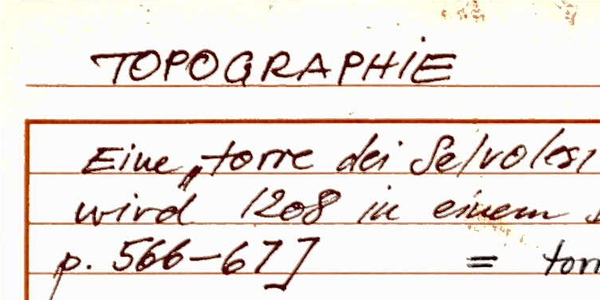 TOPOGRAPHIE
Eine „torre dei Selvolesi
wird 1208 in einem
p. 566-67] = torr